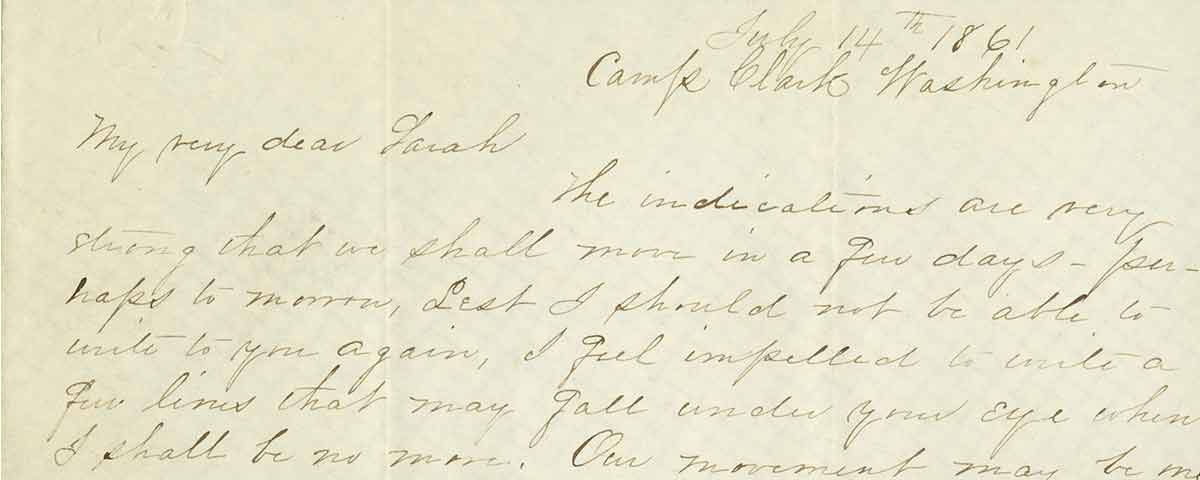 July 14th 1861
Camp Clark Washington
My very dear Sarah
The indications are very
strong that we shall move in a few days - per-
haps to morrow, Lest I should not be able to
write to you again, I feel impelled to write a
few lines that may fall under your eye when
I shall be no more. Our movement may be